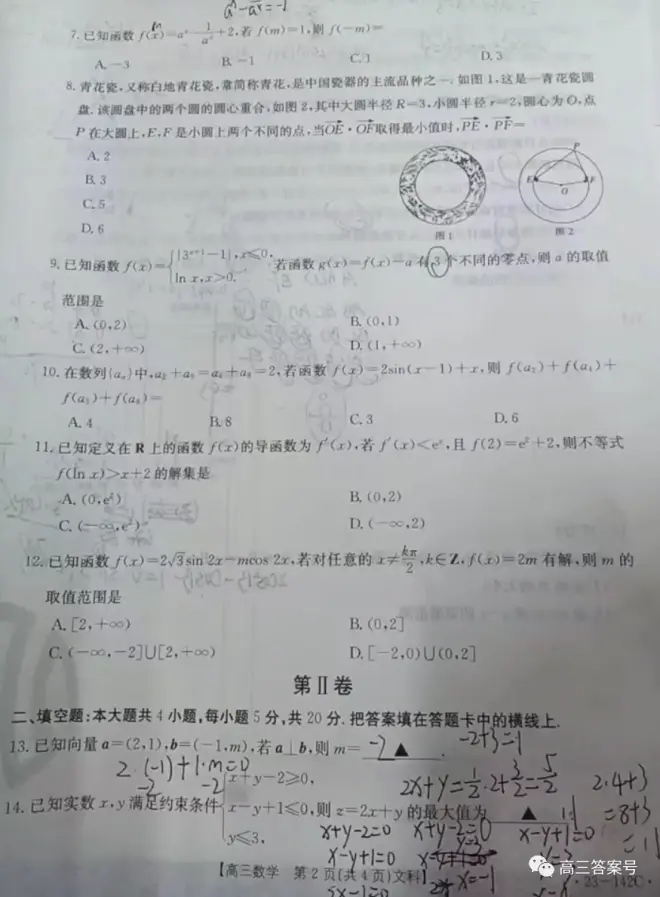 aᵐ-1/aᵐ=-1
7.已知函数 f(x)=aˣ-1/aˣ+2,若 f(m)=1,则 f(-m)=
A.-3 B.-1 C.1 D.3
8.青花瓷,又称白地青花瓷,常简称青花,是中国瓷器的主流品种之一.如图1,这是一青花瓷圆
盘.该圆盘中的两个圆的圆心重合,如图2,其中大圆半径 R=3,小圆半径 r=2,圆心为 O,点
P 在大圆上,E,F 是小圆上两个不同的点,当OE·OF取得最小值时,PE·PF=
A.2
B.3
C.5
D.6
P
E O F
图1 图2
9.已知函数 f(x)={|3ˣ⁺¹-1|,x≤0,
ln x,x>0. 若函数 g(x)=f(x)-a 有3个不同的零点,则 a 的取值
范围是
A.(0,2) B.(0,1)
C.(2,+∞) D.(1,+∞)
10.在数列{aₙ}中,a₂+a₈=a₄+a₆=2,若函数 f(x)=2sin(x-1)+x,则 f(a₂)+f(a₄)+
f(a₆)+f(a₈)=
A.4 B.8 C.3 D.6
11.已知定义在 R 上的函数 f(x)的导函数为 f′(x),若 f′(x)<eˣ,且 f(2)=e²+2,则不等式
f(ln x)>x+2 的解集是
A.(0,e²) B.(0,2)
C.(-∞,e²) D.(-∞,2)
12.已知函数 f(x)=2√3sin 2x-mcos 2x,若对任意的 x≠kπ/2,k∈Z,f(x)=2m 有解,则 m 的
取值范围是
A.[2,+∞) B.(0,2]
C.(-∞,-2]∪[2,+∞) D.[-2,0)∪(0,2]
第Ⅱ卷
二、填空题:本大题共4小题,每小题5分,共20分.把答案填在答题卡中的横线上.
13.已知向量 a=(2,1),b=(-1,m),若 a⊥b,则 m= -2 ▲ . -2+3=1
2·(-1)+1·m=0
-2 -2
14.已知实数 x,y 满足约束条件{x+y-2≥0,
x-y+1≤0,则 z=2x+y 的最大值为 ▲ .
y≤3,
2x+y=1/2·2+3/2=5/2 2·4+3
=8+3
=11
x+y-2=0 x+y-2=0 x-y+1=0
x-y+1=0 x=-1
【高三数学 第2页(共4页)文科】
·23-142C·
高三答案号